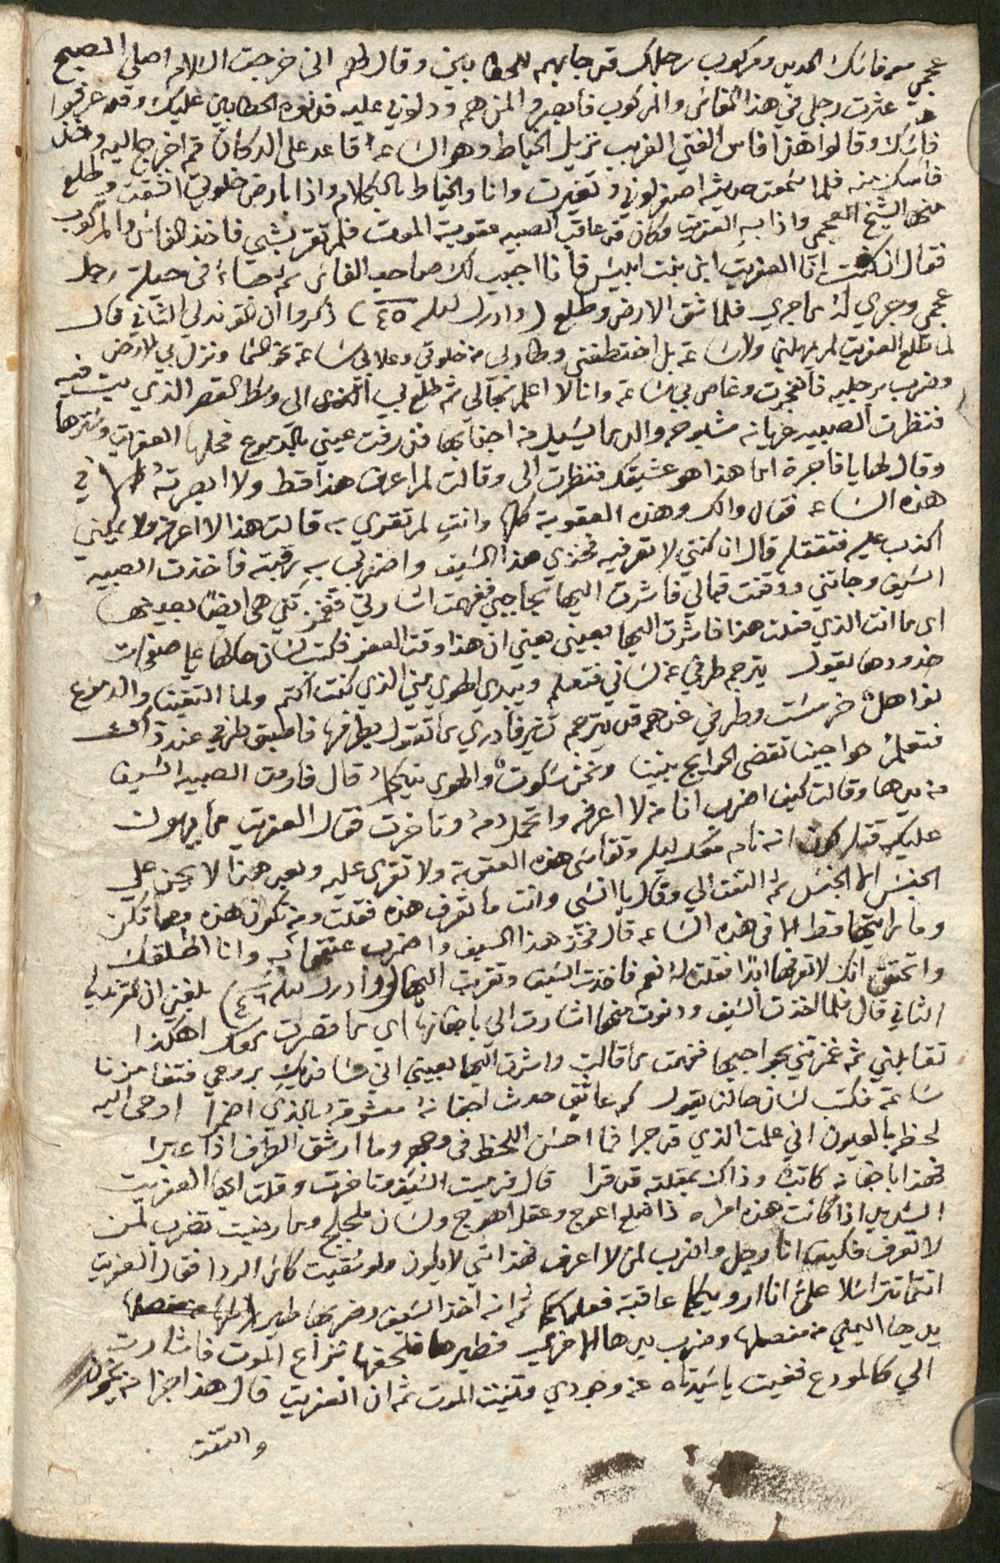 عجمي معه فاسك الحديد ومركوب رجليك قد جا بهم للحطابين وقال لهم اني خرجت السلام اصلي الصبح
عثرت رجلي في هذا الفاس والمركوب فابصروا لمن هم ودلوني عليه فدلوه الحطابين عليك وقد عرفوا
فاسك وقالوا هذا فاس الفتي الغريب نزيل الخياط وهو الساعة قاعد على الدكان قم اخرج جا اليه وخذ
فاسك منه فلما سمعت حديثه اصفر لوني وتغيرت وانا والخياط بالكلام واذا بارض خلوتي انشقت وطلع
منها الشيخ العجمي واذا به العفريت وكان قد عاقب الصبيه عقوبة الموت فلم تقر بشي فاخذ الفاس والمركوب
فقال ان كنت انا العفريت ابن بنت ابليس فانا اجيب لك صاحب الفاس ثم جاء في صفة رجل
عجمي وجري له ما جري فلما شق الارض وطلع (وادرك ليله ٤٥) ذكروا ان القرندلي الثاني قال
لما طلع العفريت لم يمهلني ولا ساعة بل اختطفني وطار بي من خلوتي وعلا بي ساعة نحو السما ونزل بي للارض
وضرب برجليه فانفجرت وغاص بي ساعة وانا لا اعلم بحالي ثم طلع بي الى وسط القصر الذي بت فيه
فنظرت الصبيه عريانه مشبوحه والدما يسيل من اجنابها فذرفت عيني بالدموع فحلها العفريت وسترها
وقال لها يا فاجرة اما هذا هو عشيقك فنظرت الي وقالت لم اعرف هذا قط ولا ابصرته الا في
هذه الساعه فقال والك وهذه العقوبة كلها وانت لم تقري به قالت هذا لا اعرفه ولا يمكنني
اكذب عليه فتقتله قال ان كنتي لا تعرفيه فخذي هذا السيف واضربي به رقبته فاخذت الصبيه
السيف وجاتني ووقفت قبالي فاشرت اليها بحاجبي ففهمت اشارتي فغمزتني هي ايضا بعينها
اي ما انت الذي فعلت هذا فاشرت اليها بعيني يعني ان هذا وقت العفو فكتب لسان حالها علي صفحات
خدودها يقول يترجم طرفي عن لساني فتعلم ويبدي الهوي مني الذي كنت اكتم ولما التقينا والدموع
نواهل خرست وطرفي عنهم قد يترجم تشير فادري ما تقول بطرفها فاطبق طرفي عند ذاك
فتعلم حواجبنا تقضي الحوايج بيننا ونحن سكوت والهوي يتكلم قال فارمت الصبيه السيف
من يدها وقالت كيف اضرب انا من لا اعرفه واتحمل دمه وتاخرت فقال العفريت ما يهون
عليك قتله كون انه نام عندك ليله وتقاسي هذه العقوبة ولا تقري عليه وبعد هذا لا يحن علي
الجنس الا الجنس ثم التفت الي وقال يا انسي وانت ما تعرف هذه فقلت ومن تكون هذه وما تكن
وما رايتها قط الا في هذه الساعه قال فخذ هذا السيف واضرب عنقها به وانا اطلقك
واتحقق انك لا تعرفها ابدا فقلت له نعم فاخذت السيف وتقربت اليها (وادرك ليله ٤٦) بلغني ان القرندلي
الثاني قال فلما اخذت السيف ودنوت منها اشارت الي باجفانها اي ما قصرت بحقك اهكذا
تقابلني ثم غمزتني بحواجبها ففهمت ما قالت واشرت اليها بعيني اني سافديك بروحي فتغامزنا
ساعة فكتب لسان حالنا يقول كم عاشق حدث اجفانه معشوقه بالذي اضمرا اوحى اليه
لحظه بالعيون اني علمت الذي قد جرا فما احسن اللحظ في وجهه وما ارشق الطرف اذا عبرا
فهذا باجفانه كاتب وذاك بمقلته قد قرا قال فرميت السيف وتاخرت وقلت ايها العفريت
الشديد اذا كانت هذه امراه ذا ضلع اعوج وعقل اهوج ولسان ملجلج وما رضيت تضرب لمن
لا تعرف فكيف انا رجل واضرب لمن لا اعرف فهذا شي لا يكون ولو سقيت كاس الردا فقال العفريت
انتما تتراسلا علي انا اوريكما عاقبة فعلكما ثم انه اخذ السيف وضربها طير
يدها اليمني من مفصلها وضرب يدها الاخري فطيرها فلحقها نزاع الموت فاشارت
الي كالمودع فغبت يا سيدتاه عن وجودي وتمنيت الموت ثم ان العفريت قال هذا جزا من يخون
والتفت